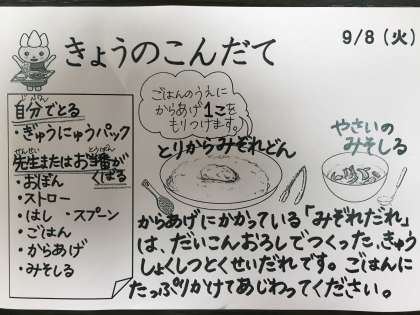 きょうのこんだて
9/8（火）
自分でとる
・ぎゅうにゅうパック
先生またはお当番が
くばる
・おぼん
・ストロー
・はし ・スプーン
・ごはん
・からあげ
・みそしる
ごはんのうえに
からあげ1こを
もりつけます。
とりからみぞれどん
やさいの
みそしる
からあげにかかっている「みぞれだれ」
は、だいこんおろしでつくった、きゅう
しょくしつとくせいだれです。ごはんに
たっぷりかけてあじわってください。